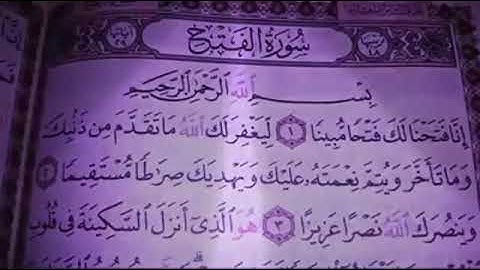 سُورَةُ الْفَتْحِ
بِسْمِ اللَّهِ الرَّحْمَٰنِ الرَّحِيمِ
إِنَّا فَتَحْنَا لَكَ فَتْحًا مُّبِينًا ١ لِّيَغْفِرَ لَكَ اللَّهُ مَا تَقَدَّمَ مِن ذَنبِكَ
وَمَا تَأَخَّرَ وَيُتِمَّ نِعْمَتَهُ عَلَيْكَ وَيَهْدِيَكَ صِرَاطًا مُّسْتَقِيمًا ٢
وَيَنصُرَكَ اللَّهُ نَصْرًا عَزِيزًا ٣ هُوَ الَّذِي أَنزَلَ السَّكِينَةَ فِي قُلُوبِ